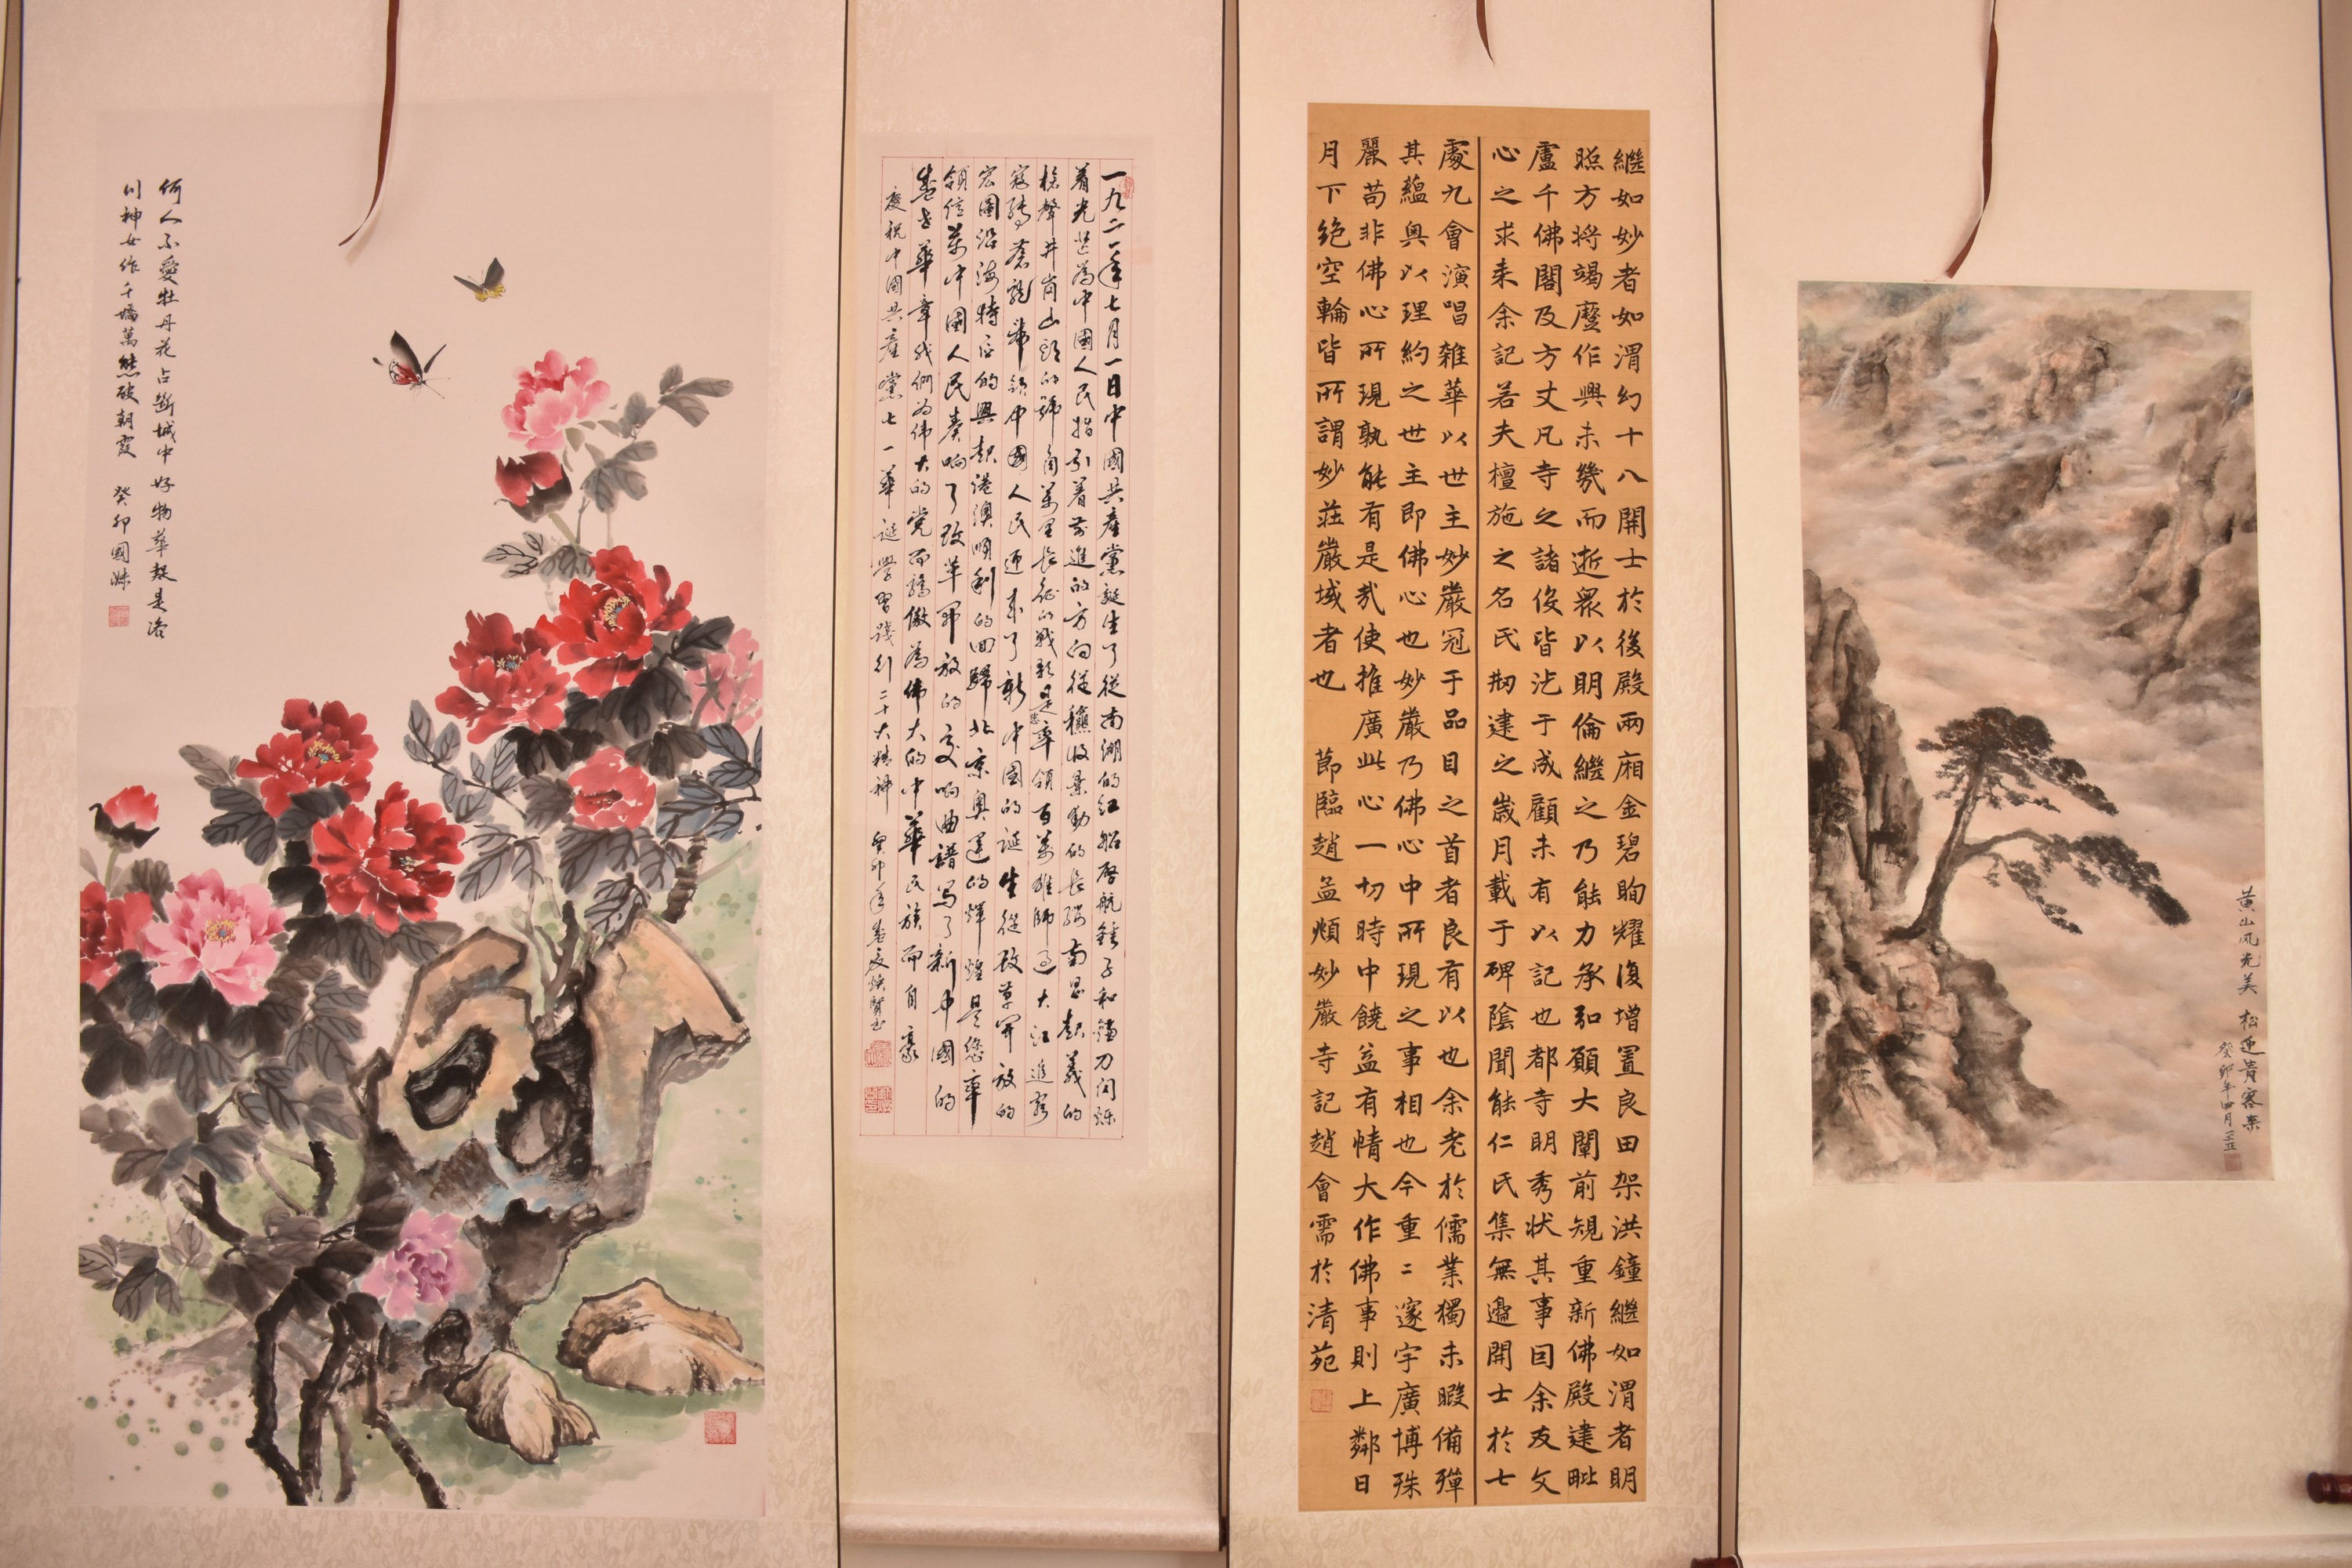 何人不愛牡丹花占斷城中好物華疑是洛
川神女作千嬌萬態破朝霞 癸卯國姝
一九二一年七月一日中國共產黨誕生了從南湖的紅船啓航錘子和鐮刀闪烁
着光芒為中國人民指引着前進的方向從秋收暴動的長矛南昌起義的
槍聲井崗山頭的號角萬里長征的戰歌是您率領百萬雄師過大江追窮
寇縛蒼龍带領中國人民迎來了新中国的诞生從改革開放的
宏圖沿海特区的興起港澳順利的回歸北京奥運的輝煌是您率
領億萬中國人民奏响了改革開放的交响曲譜写了新中國的
華章我們为伟大的党而驕傲為偉大的中華民族而自豪
慶祝中國共產黨七一華诞學習踐行二十大精神 癸卯年
繼如妙者如渭幻十八開士於後殿兩廂金碧眴耀復增置良田架洪鐘繼如渭者明
照方將竭蹙作興未幾而逝眾以明倫繼之乃能力承弘願大闡前規重新佛殿建毗
盧千佛閣及方丈凡寺之諸役皆訖于成顧未有以記也都寺明秀状其事囙余友文
心之求来余記若夫檀施之名氏刱建之歲月載于碑陰聞能仁氏集無邊開士於七
處九會演唱雜華以世主妙嚴冠于品目之首者良有以也余老於儒業獨未暇備殫
其蘊奥以理約之世主即佛心也妙嚴乃佛心中所現之事相也今重二邃宇廣博殊
麗苟非佛心所現孰能有是哉使推廣此心一切時中饒益有情大作佛事則上鄰日
月下絕空輪皆所謂妙莊嚴域者也 節臨趙孟頫妙嚴寺記趙會需於清苑
黄山风光美 松迎賓客来
癸卯年四月